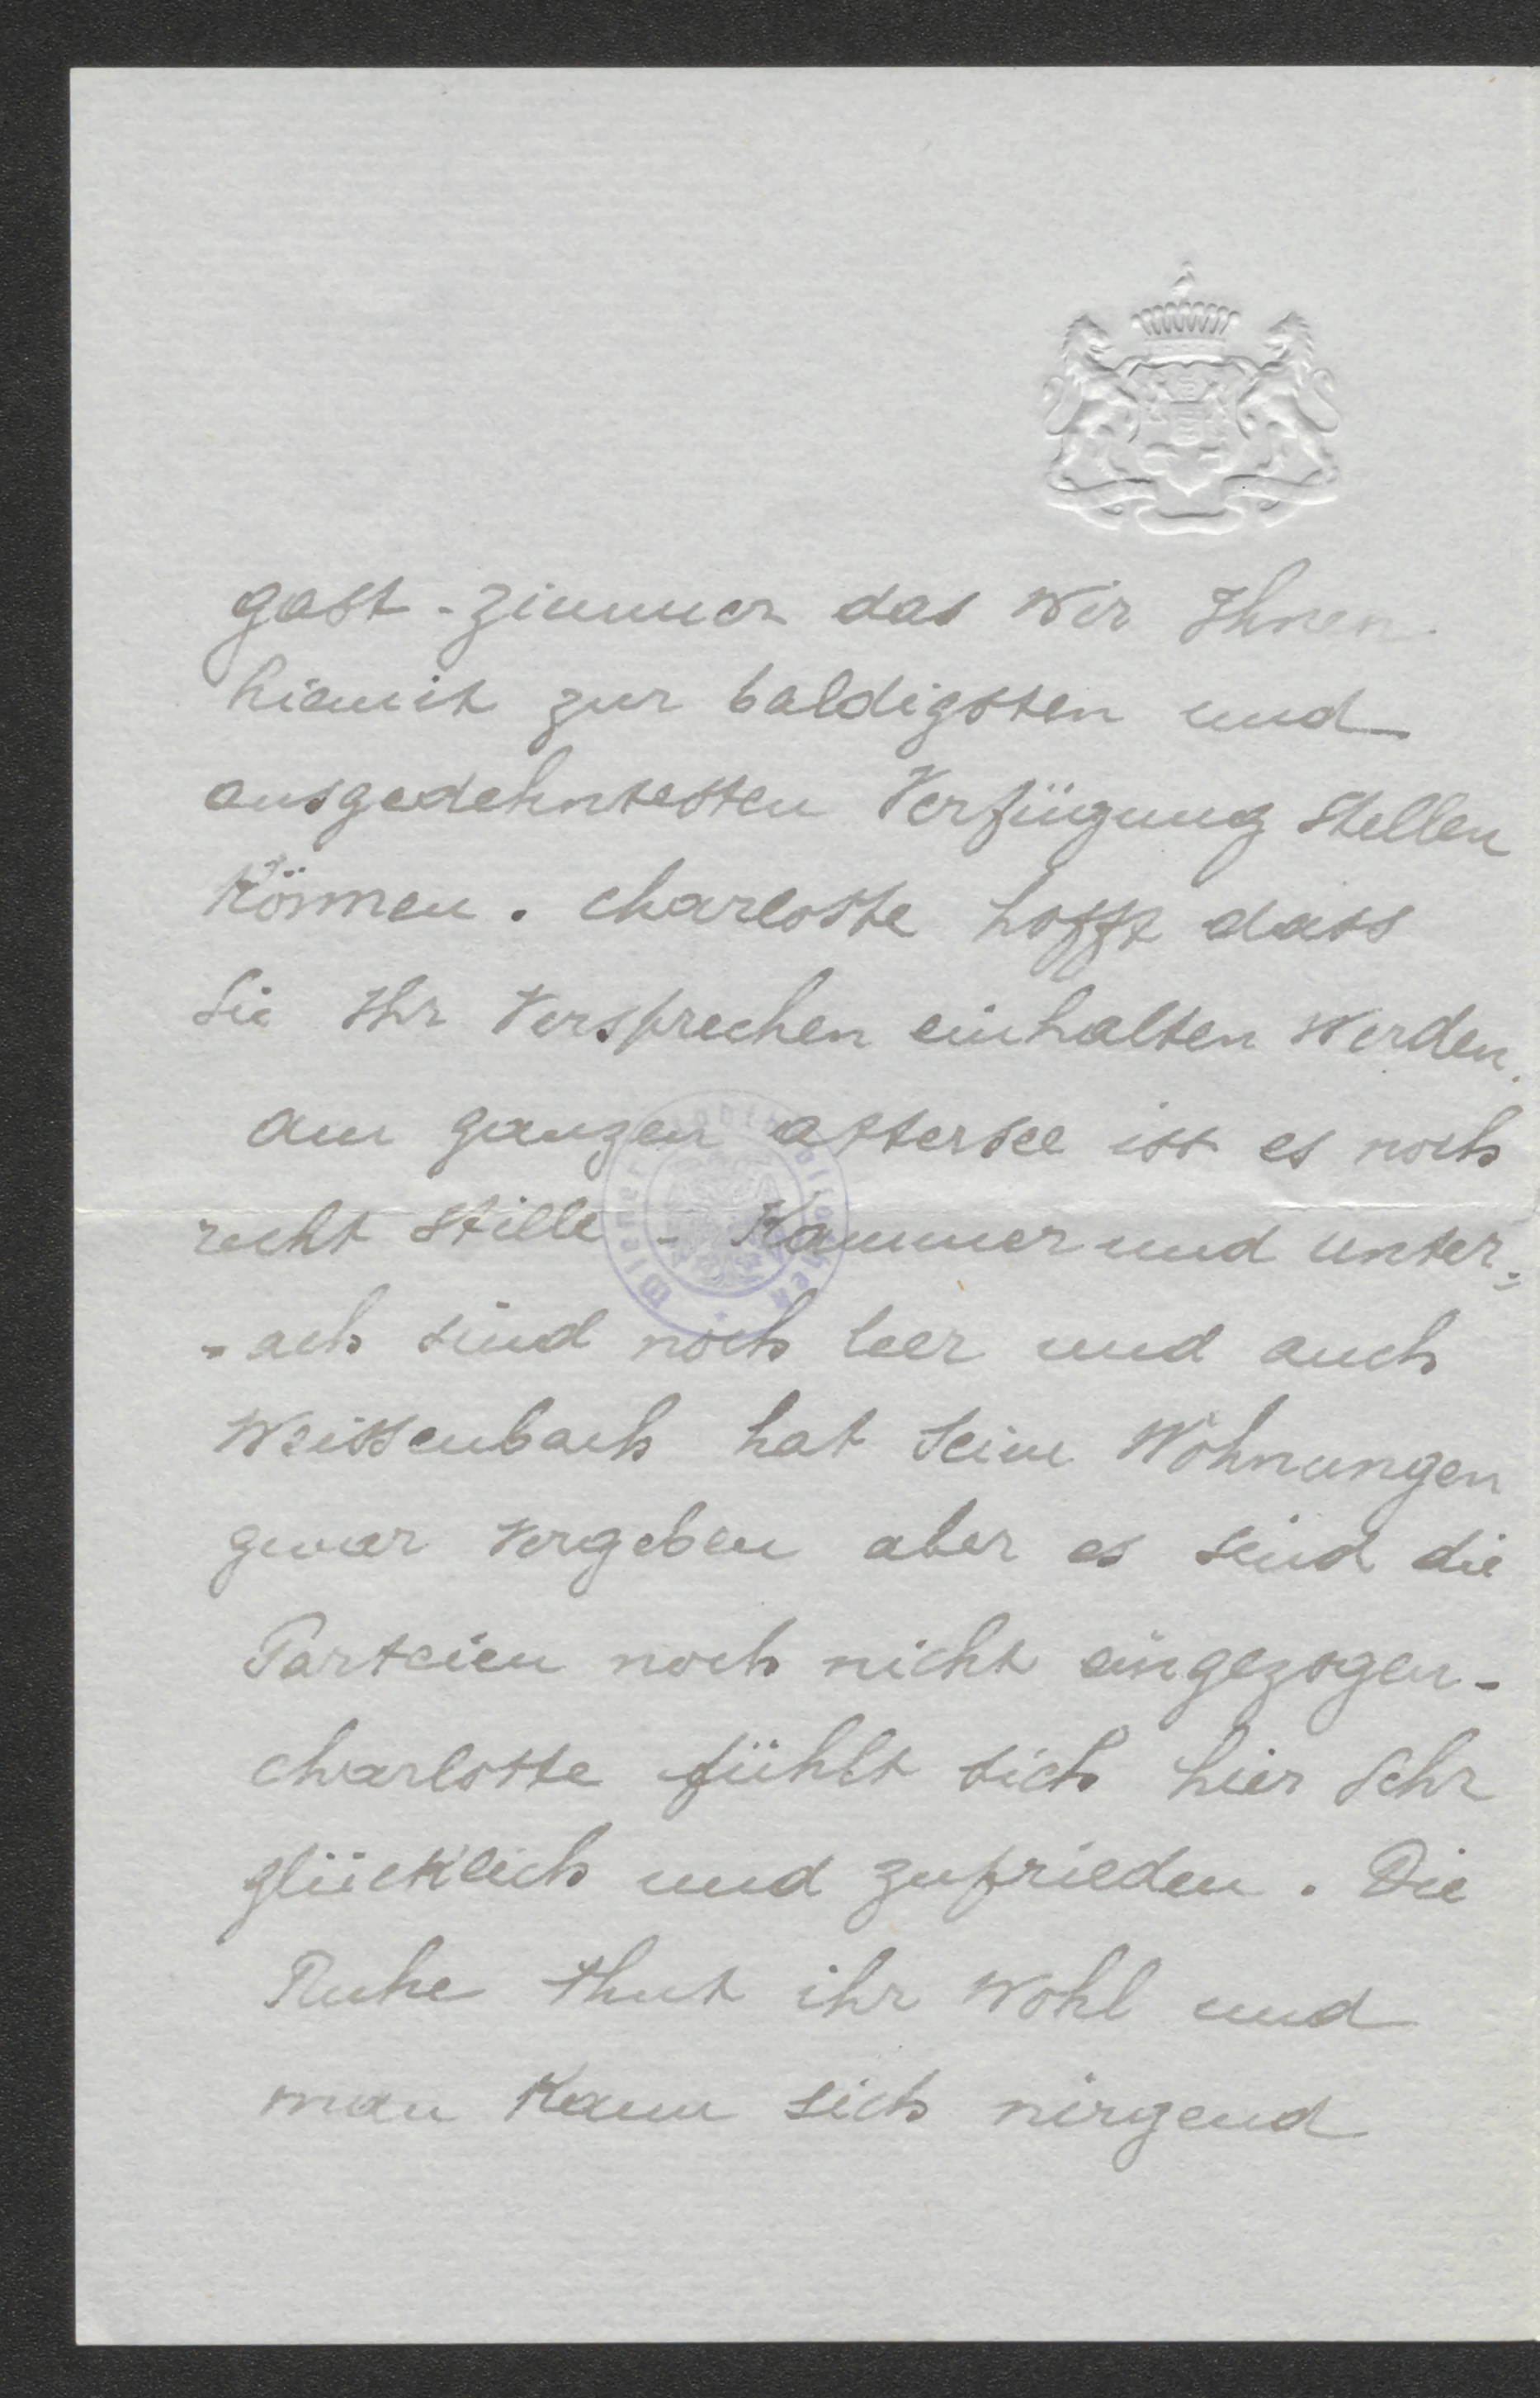 gast-zimmer das wir Ihnen
hiemit zur baldigsten und
ausgedehntesten Verfügung stellen
können. Charlotte hofft dass
Sie Ihr Versprechen einhalten werden.
Am ganzen Attersee ist es noch
recht stille - Kammer und Unter=
=ach sind noch leer und auch
Weissenbach hat seine Wohnungen
zwar vergeben aber es sind die
Parteien noch nicht eingezogen -
Charlotte fühlt sich hier sehr
glücklich und zufrieden. Die
Ruhe thut ihr wohl und
man kann sich nirgend
Wiener Stadtbibliothek